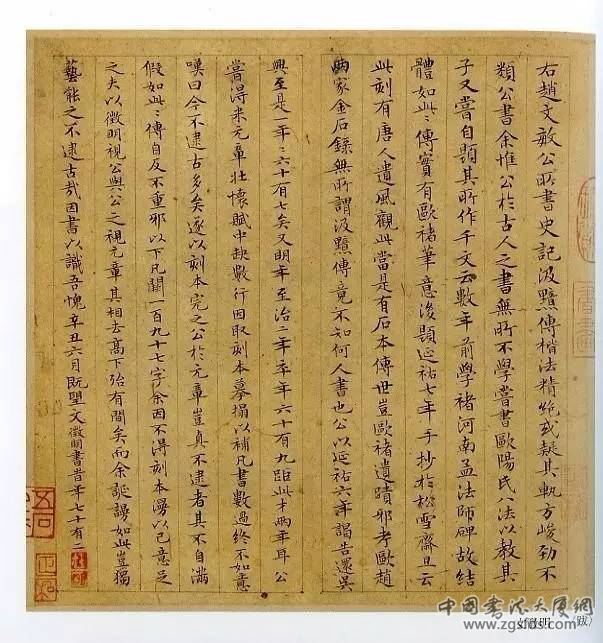 右趙文敏公所書史記汲黯傳楷法精絶或疑其軌方峻勁不
類公書余惟公於古人之書無所不學嘗書歐陽氏八法以教其
子又嘗自題其所作千文云數年前學褚河南孟法師碑故結
體如此此傳實有歐褚筆意後題延祐七年手抄於松雪齋且云
此刻有唐人遺風觀此當是有石本傳世豈歐褚遺蹟邪考歐趙
兩家金石錄無所謂汲黯傳竟不知何人書也公以延祐六年謁告還吳
興至是一年六十有七矣又明年至治二年卒年六十有九距此才兩年耳公
嘗得米元章壯懷賦中缺數行因取刻本摹搨以補凡書數過終不如意
嘆曰今不逮古多矣遂以刻本完之公於元章豈真不逮者其不自滿
假如此此傳自反不重邪以下凡闕一百九十七字余因不得刻本漫以己意足
之夫以徵明視公與公之視元章其相去高下殆有間矣而余誕謾如此豈獨
藝能之不逮古哉因書以識吾愧辛丑六月既望文徵明書昔年七十有二
中國書法大展網
www.zgsfds.com
(跋)